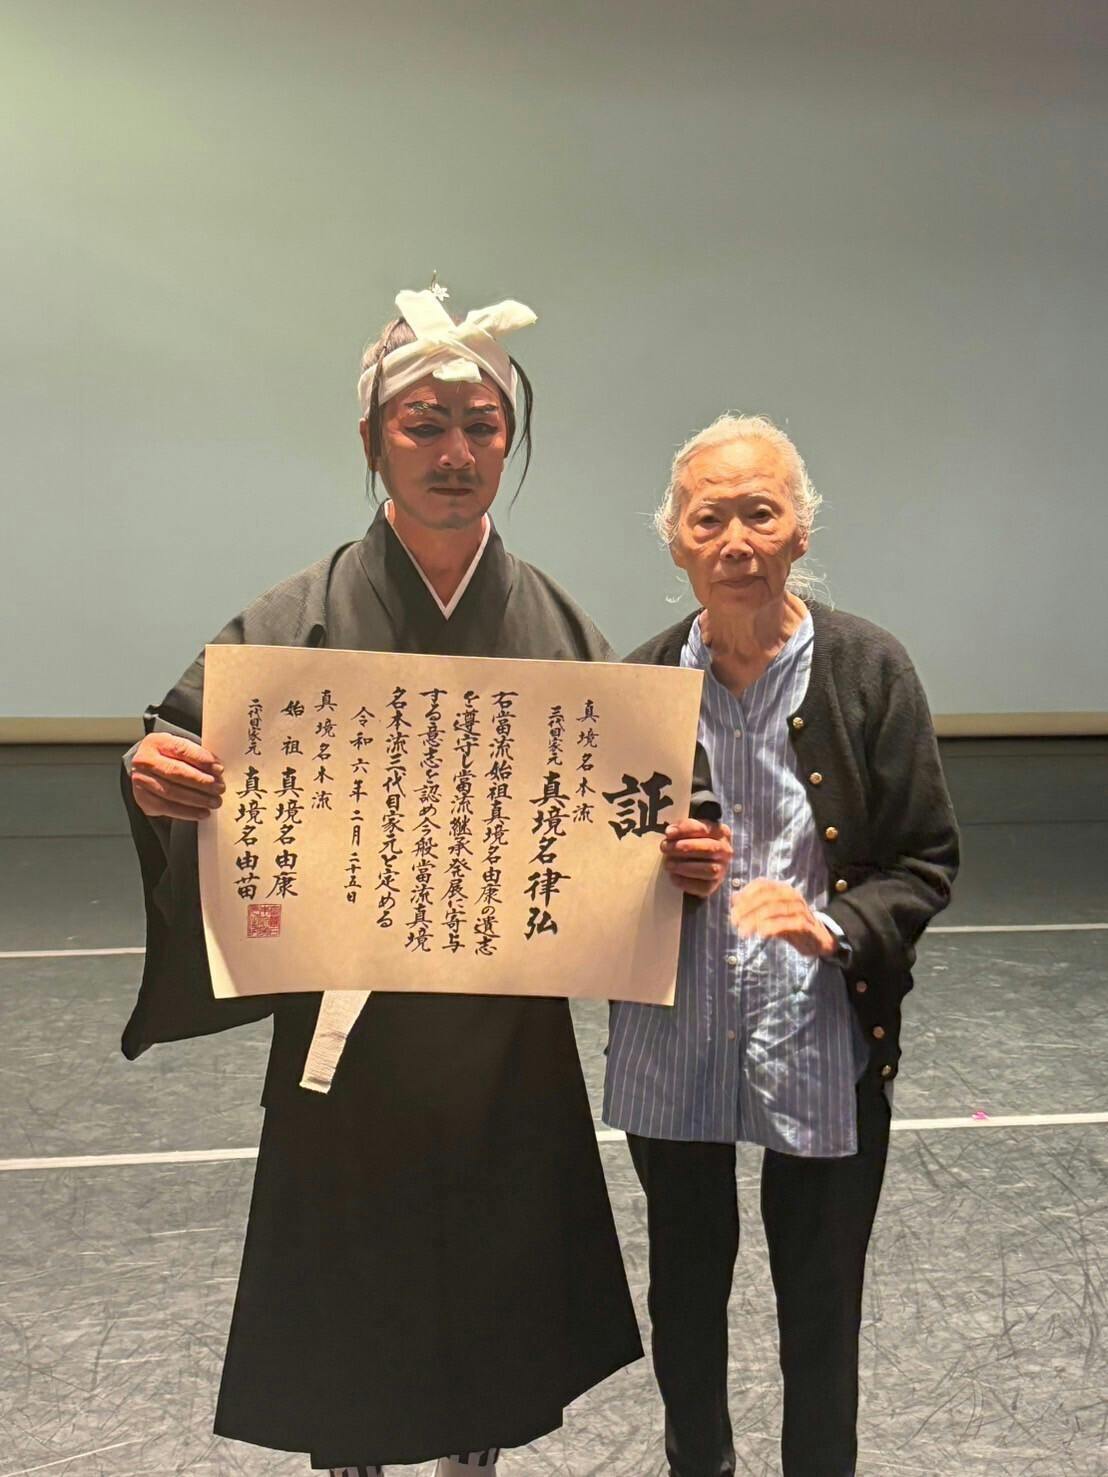 証
真境名本流
三代目家元 真境名律弘
右當流始祖真境名由康の遺志
を遵守し當流継承発展に寄与
する意志を認め今般當流真境
名本流三代目家元と定める
令和六年二月二十五日
真境名本流
始祖 真境名由康
二代目家元 真境名由苗